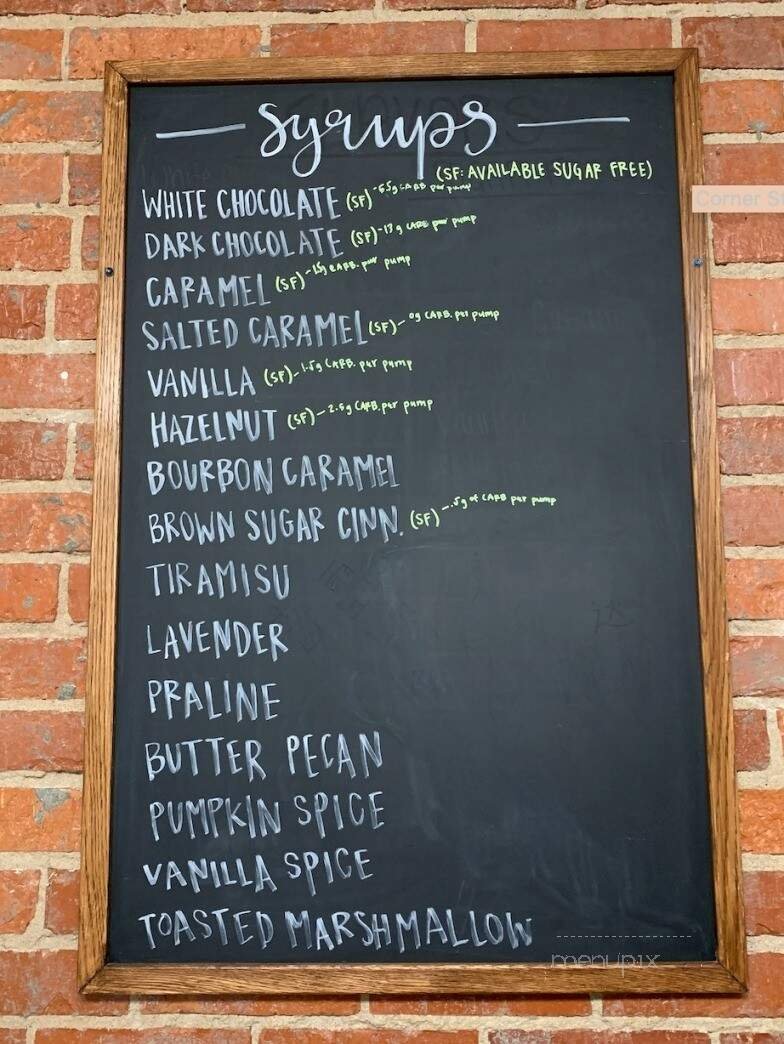 Syrups
(SF: AVAILABLE SUGAR FREE)
WHITE CHOCOLATE (SF) -5.5g CARB per pump
DARK CHOCOLATE (SF) -17g CARB per pump
CARAMEL (SF) -15g CARB. per pump
SALTED CARAMEL (SF) - 0g CARB. per pump
VANILLA (SF) - 1.5g CARB. per pump
HAZELNUT (SF) - 2.5g CARB. per pump
BOURBON CARAMEL
BROWN SUGAR CINN. (SF) -.5g of CARB per pump
TIRAMISU
LAVENDER
PRALINE
BUTTER PECAN
PUMPKIN SPICE
VANILLA SPICE
TOASTED MARSHMALLOW
menupix
Corner St